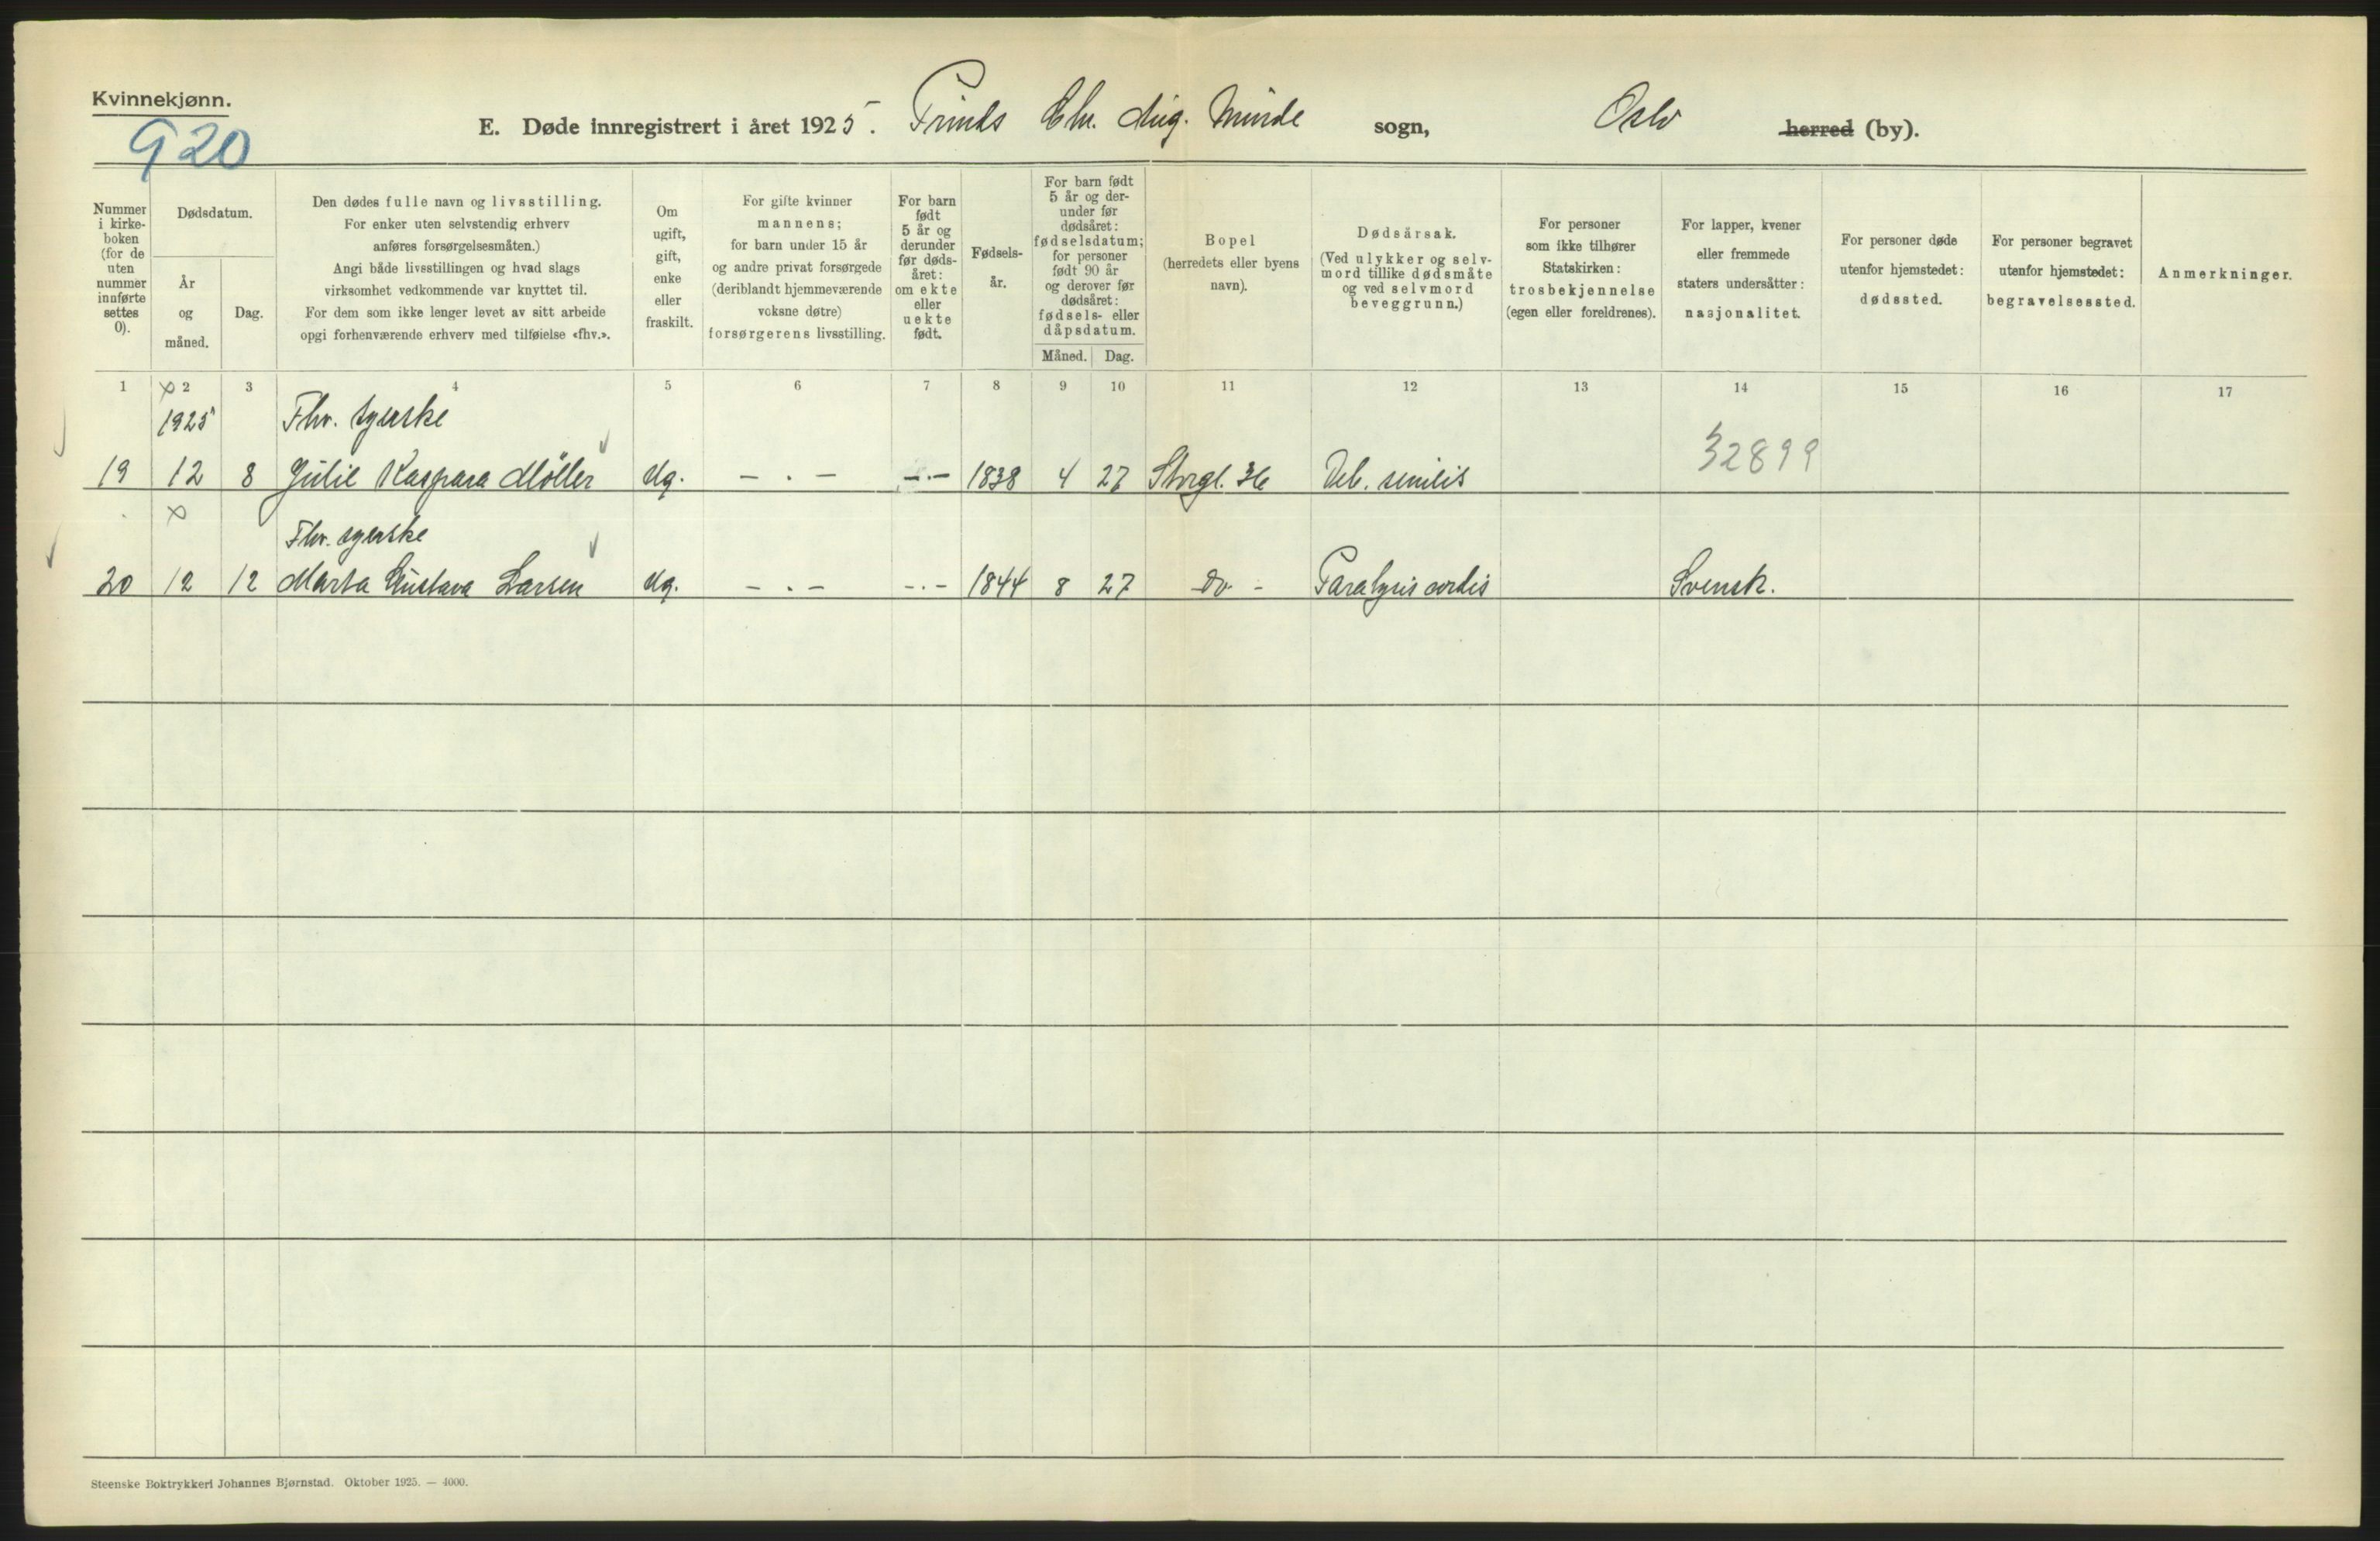 Kvinnekjønn.
920
E. Døde innregistrert i året 1925. Prinds Chr. Aug. Minde sogn, Oslo herred (by).
Nummer i kirke- boken (for de uten nummer innførte settes 0).
Dødsdatum.
År og måned.
Dag.
Den dødes fulle navn og livsstilling.
For enker uten selvstendig erhverv
anføres forsørgelsesmåten.)
Angi både livsstillingen og hvad slags
virksomhet vedkommende var knyttet til.
For dem som ikke lenger levet av sitt arbeide
opgi forhenværende erhverv med tilføielse «fhv.».
Om ugift, gift, enke eller fraskilt.
For gifte kvinner
mannens;
for barn under 15 år
og andre privat forsørgede
(deriblandt hjemmeværende
voksne døtre)
forsørgerens livsstilling.
For barn født 5 år og derunder før døds- året: om ekte eller uekte født.
Fødsels- år.
For barn født
5 år og der-
under før
dødsåret:
fødselsdatum;
for personer
født 90 år
og derover før
dødsåret:
fødsels- eller
dåpsdatum.
Måned. Dag.
Bopel
(herredets eller byens
navn).
Dødsårsak.
(Ved ulykker og selv-
mord tillike dødsmåte
og ved selvmord
beveggrunn.)
For personer
som ikke tilhører
Statskirken:
trosbekjennelse
(egen eller foreldrenes).
For lapper, kvener
eller fremmede
staters undersåtter:
nasjonalitet.
For personer døde
utenfor hjemstedet:
dødssted.
For personer begravet
utenfor hjemstedet:
begravelsessted.
Anmerkninger.
1 2 3 4 5 6 7 8 9 10 11 12 13 14 15 16 17
1925 Fhv. syerske
19 12 8 Julie Kaspara Møller Ug. - . - - . - 1838 4 27 Storgt. 36 Deb. senilis 32899
Fhv. syerske
20 12 12 Marta Gustava Larsen Ug. - . - - . - 1844 8 27 Do - Paralysis cordis Svensk.
Steenske Boktrykkeri Johannes Bjørnstad. Oktober 1925. — 4000.